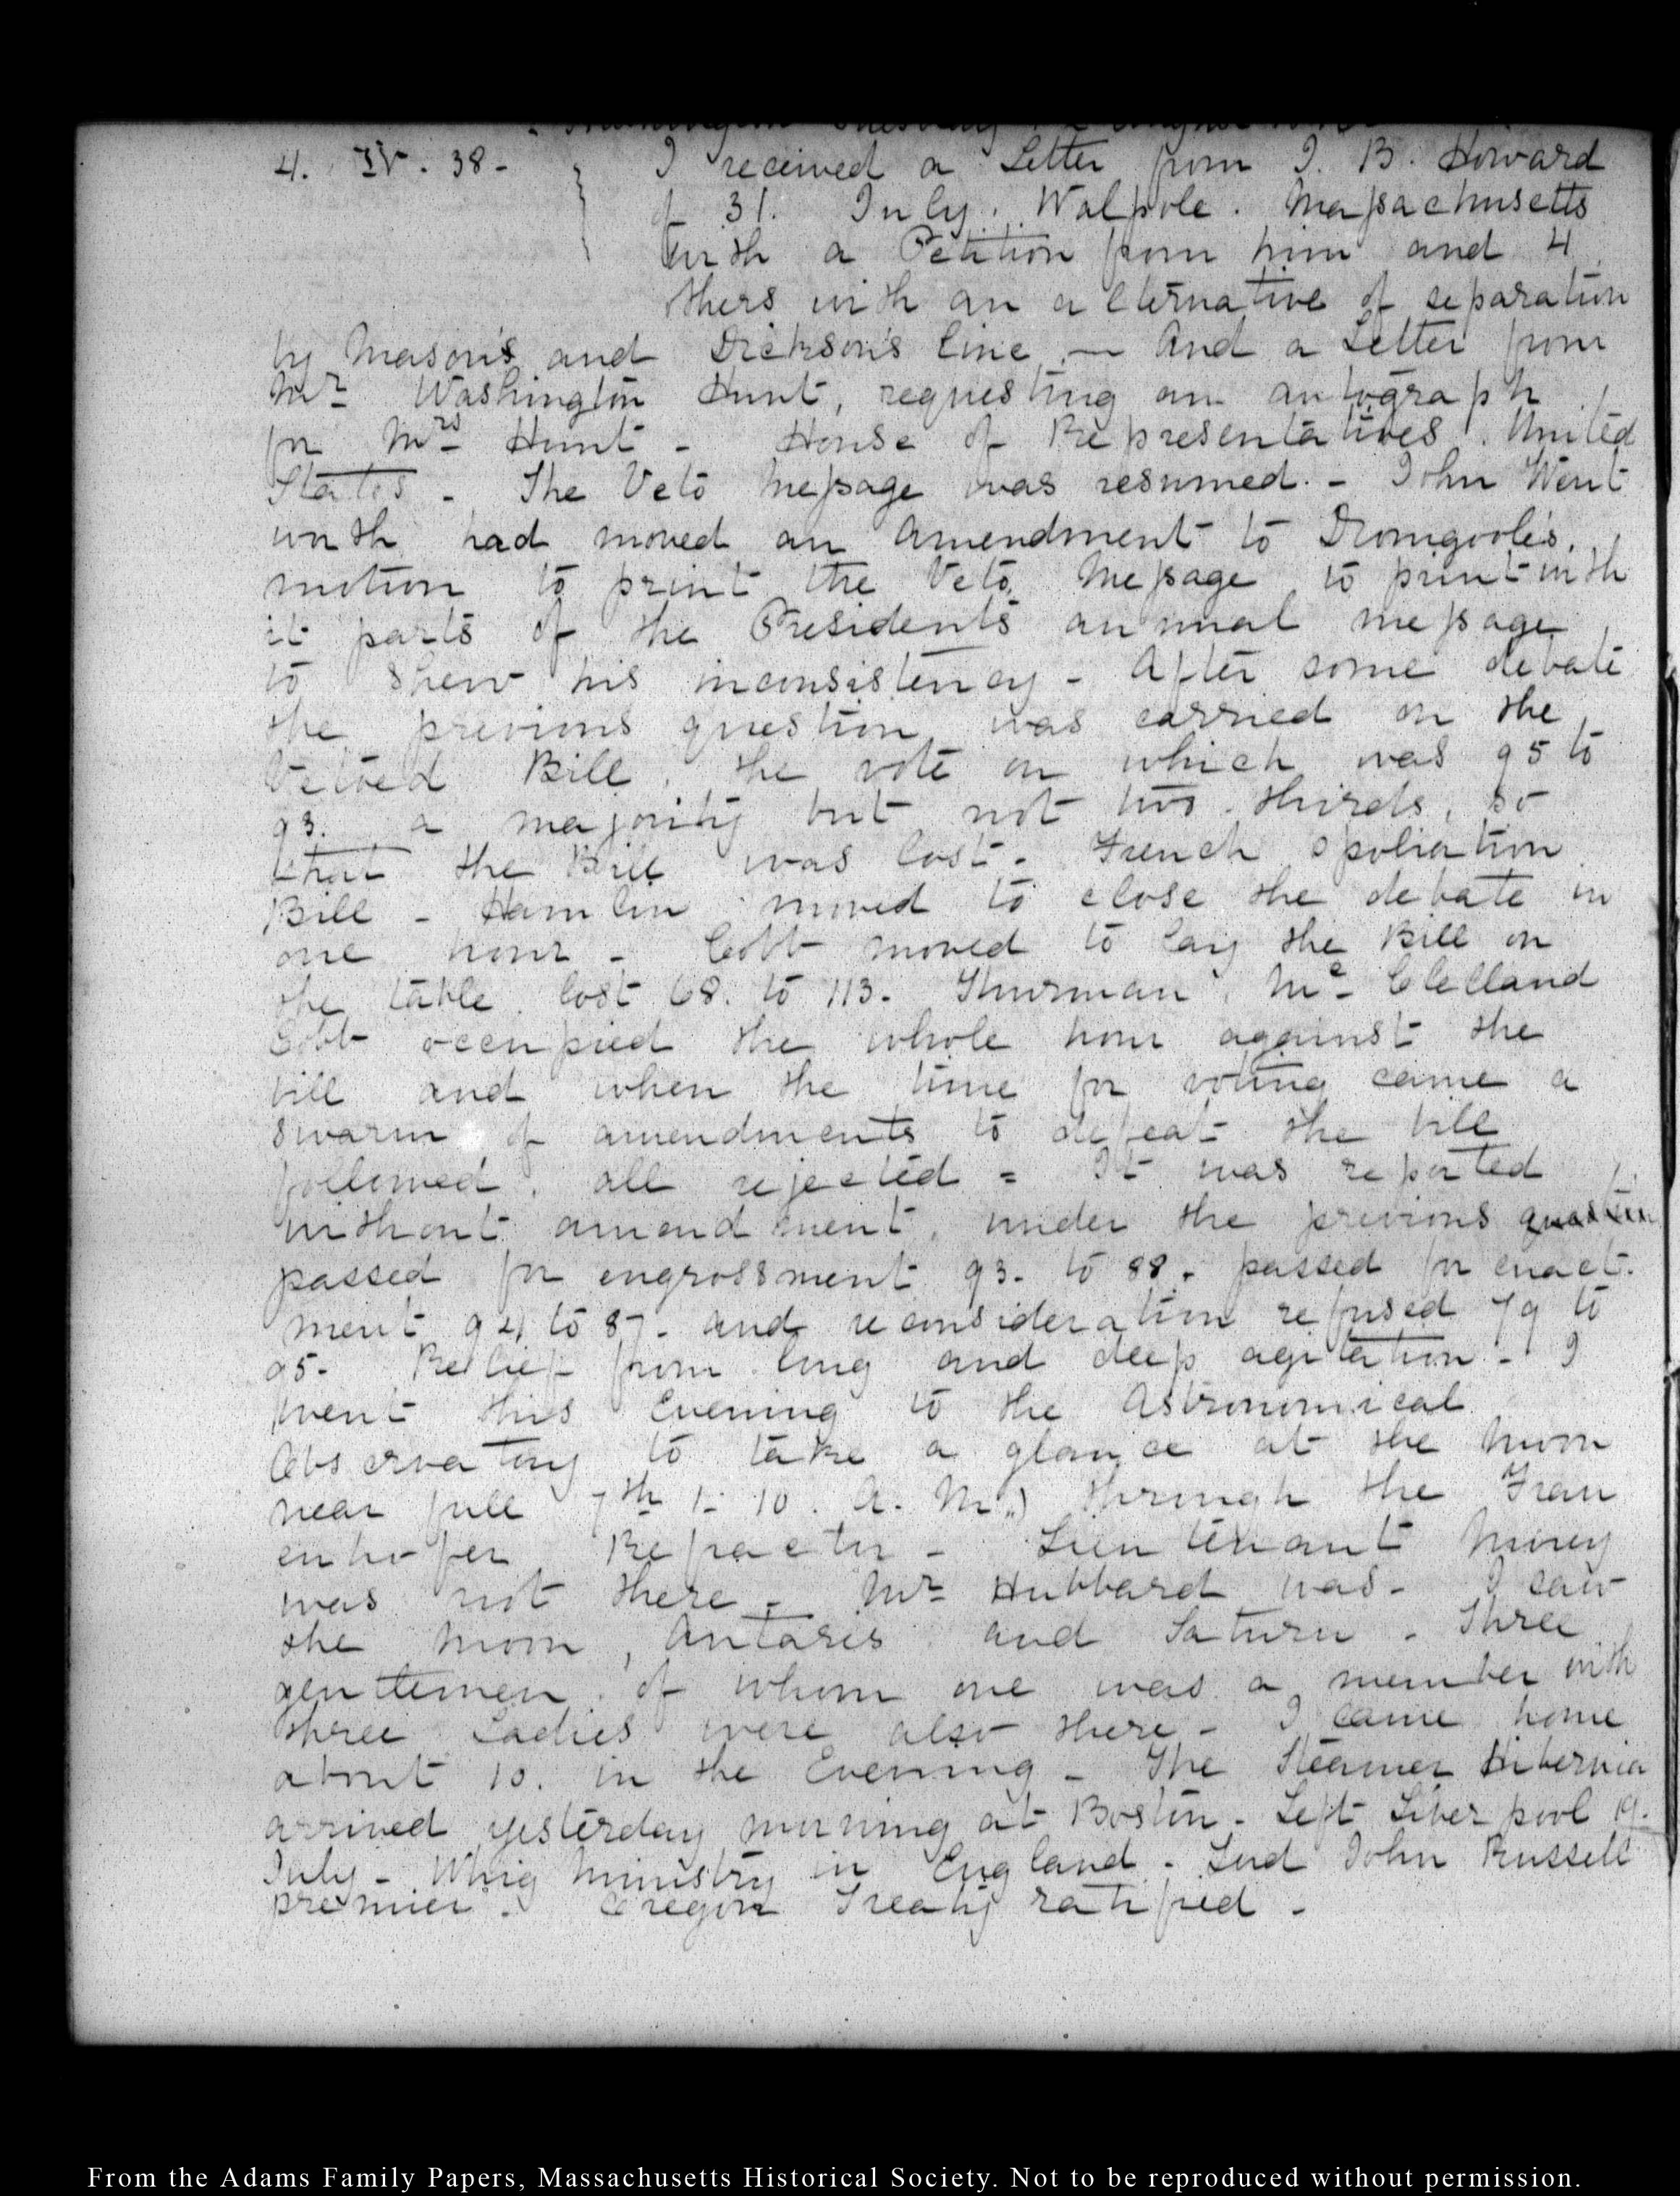 4. IV. 38-
I received a Letter from J. B. Howard
of 31. July. Walpole. Massachusetts
with a Petition from him and 4
others with an alternative of separation
by Mason's and Dickson's line — And a Letter from
Mr Washington Hunt, requesting an autograph
for Mrs Hunt - House of Representatives. United
States - The Veto Message was resumed. - John Went
worth had moved an amendment to Dromgoole's.
motion to print the Veto Message to print with
it parts of the President's annual message
to shew his inconsistency - After some debate
the previous question was carried on the
Vetoed Bill, the vote on which was 95 to
93. a majority but not two-thirds, so
that the Bill was lost. French spoliation
Bill - Hamlin moved to close the debate in
one hour - Cobb moved to lay the Bill on
the table. lost 68. to 113. Thurman. Mc Clelland
Cobb occupied the whole hour against the
bill and when the time for voting came a
swarm of amendments to defeat the bill
followed, all rejected = It was reported
without amendment, under the previous question
passed for engrossment 93. to 88. passed for enact-
ment 94 to 87. and reconsideration refused 79 to
95. Relief from long and deep agitation - I
went this Evening to the Astronomical
Observatory to take a glance at the Moon
near full 7th 1- 10. A. M.) through the Frau
enhofer Refractor - Lieutenant Maury
was not there - Mr Hubbard was - I saw
the Moon, Antares and Saturn - Three
gentlemen, of whom one was a member with
three Ladies were also there - I came home
about 10. in the Evening - The Steamer Hibernia
arrived yesterday morning at Boston - Left Liverpool 19.
July - Whig Ministry in England - Lord John Russell
premier. Oregon Treaty ratified -
From the Adams Family Papers, Massachusetts Historical Society. Not to be reproduced without permission.